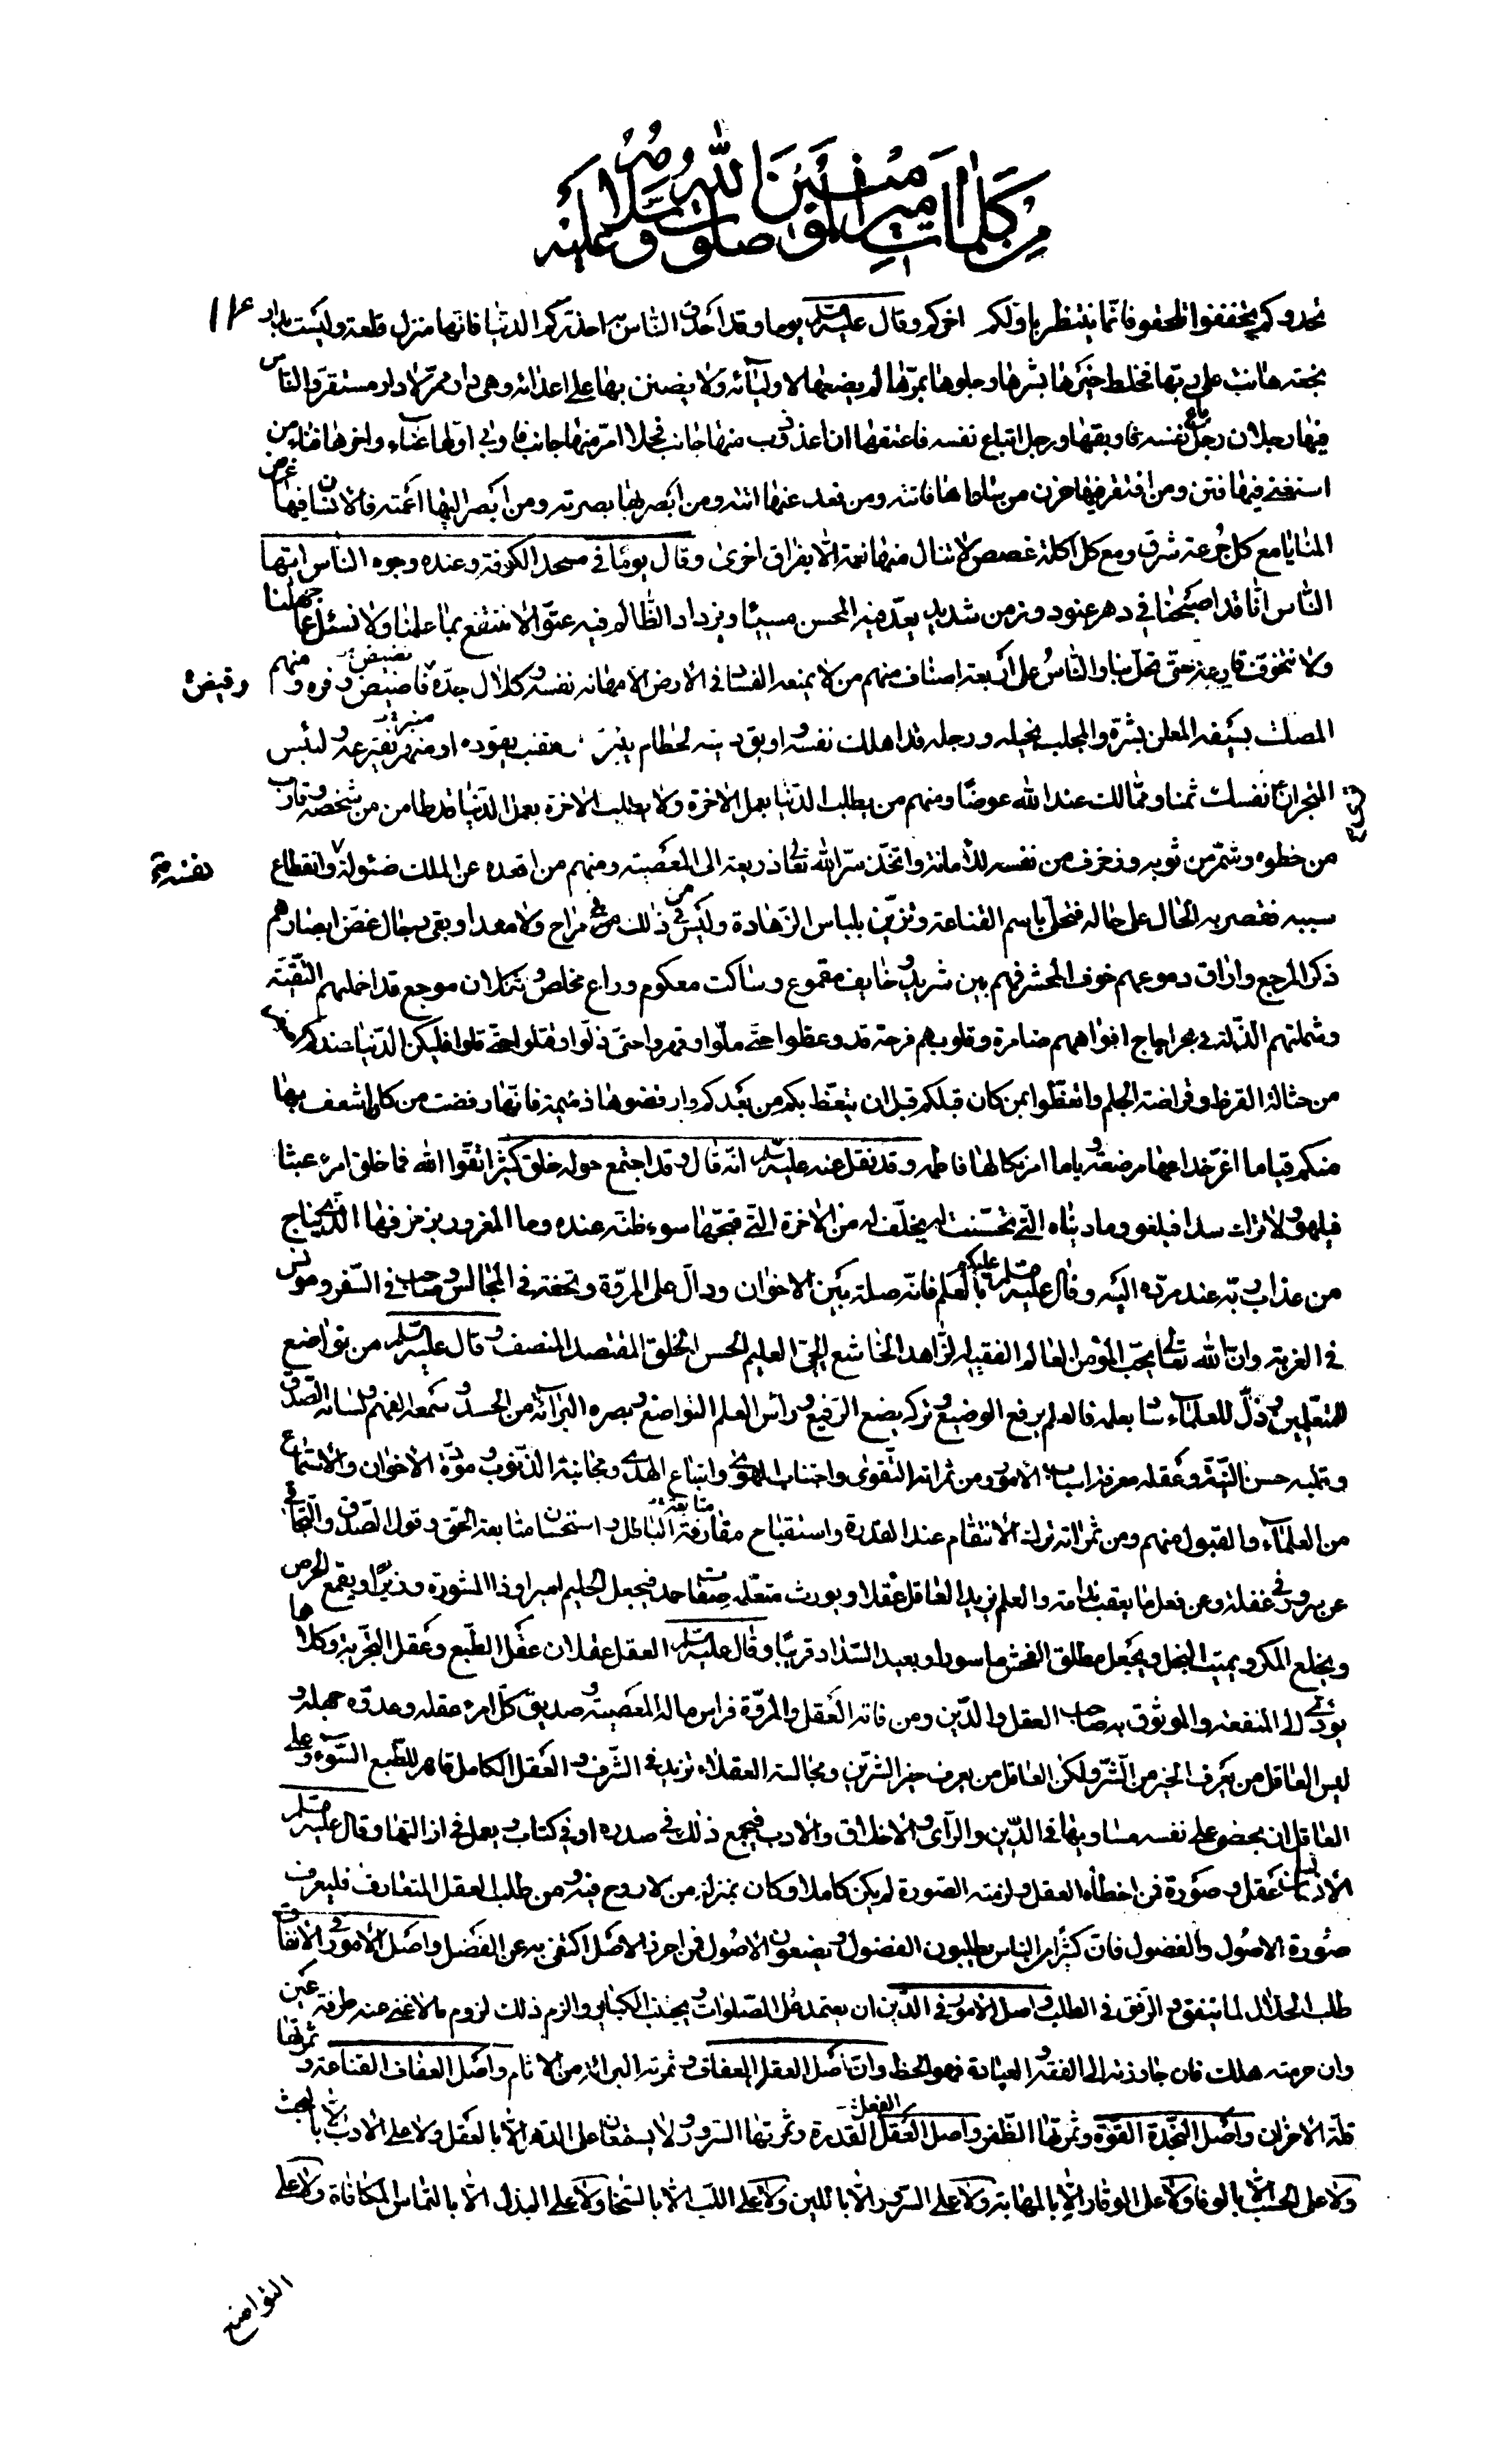 من كلمات امير المؤمنين صلوات الله وسلامه عليه
تحدوكم تخففوا تلحقوا فانما ينتظر باولكم اخركم وقال عليه السلم يوما وقد احدق الناس به احذركم الدنيا فانها منزل قلعة وليست بدار
نجعة هانت على ربها فخلط خيرها بشرها وحلوها بمرها لم يضعها لاوليائه ولا يضنن بها على اعدائه وهى دار ممر لا دار مستقر والناس
فيها رجلان رجل باع نفسه فاوبقها ورجل ابتاع نفسه فاعتقها ان اعذوذب منها جانب فحلا امر منها جانب فاوبى اولها عناء واخرها فناء من
استغنى فيها فتن ومن افتقر فيها حزن من ساعاها فاتته ومن قعد عنها اتته ومن ابصر بها بصرته ومن ابصر اليها اعمته فالانسان فيها غرض
المنايا مع كل جرعة شرق ومع كل اكلة غصص لا تنال منها نعمة الا بفراق اخرى وقال يوما فى مسجد الكوفة وعنده وجوه الناس ايها
الناس انا قد اصبحنا فى دهر عنود وزمن شديد يعد فيه المحسن مسيئا ويزداد الظالم فيه عتوا لا ننتفع بما علمنا ولا نسئل عما جهلنا
ولا نتخوف قارعة حتى تحل بنا والناس على اربعة اصناف منهم من لا يمنعه الفساد فى الارض الا مهانة نفسه وكلال حده ونضيض وفره ومنهم
المصلت بسيفه المعلن بشره والمجلب بخيله ورجله قد اهلك نفسه واوبق دينه لحطام ينتهزه او مقنب يقوده او منبر يفرعه ولبئس
المتجر ان ترى نفسك ثمنا ومما لك عند الله عوضا ومنهم من يطلب الدنيا بعمل الاخرة ولا يطلب الاخرة بعمل الدنيا قد طامن من شخصه وقارب
من خطوه وشمر من ثوبه وزخرف من نفسه للامانة واتخذ ستر الله تعالى ذريعة الى المعصية ومنهم من اقعده عن الملك ضئولة نفسه وانقطاع
سببه فقصر به الحال على حاله فتحلى باسم القناعة وتزين بلباس الزهادة وليس من ذلك فى مراح ولا مغدا وبقى رجال غض ابصارهم
ذكر المرجع واراق دموعهم خوف المحشر فهم بين شريد وخايف مقموع وساكت معكوم وداع مخلص وثكلان موجع قد اخملتهم التقية
وشملتهم الذلة فى بحر اجاج افواههم ضامزة وقلوبهم قرحة قد وعظوا حتى ملوا وقهروا حتى ذلوا وقتلوا حتى قلوا فليكن الدنيا عندكم
من حثالة القرظ وقراضة الجلم واتعظوا بمن كان قبلكم قبل ان يتعظ بكم من بعدكم وارفضوها ذميمة فانها رفضت من كان اشعف بها
منكم فيا ما اغر خداعها مرضعة ويا ما امر نكالها فاطمة وقد نقل عنه عليه السلم انه قال وقد اجتمع حوله خلق كثير اتقوا الله فما خلق امرء عبثا
فيلهو ولا ترك سدا فيلغو وما دنياه التى تحسنت له بخلف له من الاخرة التى قبحها سوء ظنه عنده وما المغرور بزخرفها الذى بناج
من عذاب ربه عند مرده اليه وقال عليه السلم عليكم بالعلم فانه صلة بين الاخوان ودال على المروة وتحفة فى المجالس وصاحب فى السفر ومونس
فى الغربة وان الله تعالى يحب المؤمن العالم الفقيه الزاهد الخاشع الحيى العليم الحسن الخلق المقتصد المنصف وقال عليه السلم من تواضع
للمتعلمين وذل للعلماء ساد بعلمه فالعلم يرفع الوضيع وتركه يضع الرفيع وراس العلم التواضع وبصره البرآئة من الحسد وسمعه الفهم ولسانه الصدق
وقلبه حسن النية وعقله معرفة اسباب الامور ومن ثمراته التقوى واجتناب الهوى واتباع الهدى ومجانبة الذنوب ومودة الاخوان والاستماع
من العلماء والقبول منهم ومن ثمراته ترك الانتقام عند القدرة واستقباح مقارفة الباطل واستحسان متابعة الحق وقول الصدق والتجافى
عن سرور فى غفلة وعن فعل ما يعقب ندامة والعلم يزيد العاقل عقلا ويورث متعلمه صفات حمد فيجعل الحليم اميرا وذا المشورة وزيرا ويقمع الحرص
ويخلع المكر ويميت البخل ويجعل مطلق الفحش ماسورا وبعيد السداد قريبا وقال عليه السلم العقل عقلان عقل الطبع وعقل التجربة وكلاهما
يؤدى الى المنفعة والموثوق به صاحب العقل والدين ومن فاته العقل والمروة فراس ماله المعصية وصديق كل امرء عقله وعدوه جهله و
ليس العاقل من يعرف الخير من الشر ولكن العاقل من يعرف خير الشرين ومجالسة العقلاء تزيد فى الشرف والعقل الكامل قاهر للطبع السوء وعلى
العاقل ان يحصى على نفسه مساويها فى الدين والرأى والاخلاق والادب فيجمع ذلك فى صدره او فى كتاب ويعمل فى ازالتها وقال عليه السلم
الانسان عقل وصورة فمن اخطأه العقل ولزمته الصورة لم يكن كاملا وكان بمنزلة من لا روح فيه ومن طلب العقل المتعارف فليعرف
صورة الاصول والفضول فان كثيرا من الناس يطلبون الفضول ويضعون الاصول فمن احرز الاصل اكتفى به عن الفضل واصل الامور فى الانفاق
طلب الحلال لما ينفق والرفق فى الطلب واصل الامور فى الدين ان يعتمد على الصلوات ويجتنب الكباير والزم ذلك لزوم ما لا غنى عنه طرفة عين
وان حرمته هلك فان جاوزته الى الفقه والعبادة فهو الحظ وان اصل العقل العفاف وثمرته البرائة من الاثام واصل العفاف القناعة وثمرتها
قلة الاحزان واصل النجدة القوة وثمرتها الظفر واصل العقل القدرة وثمرتها السرور ولا يستعان على الدهر الا بالعقل ولا على الادب الا بالبحث
ولا على الحسب الا بالوفا ولا على الوقار الا بالمهابة ولا على السرور الا باللين ولا على اللب الا بالسخا ولا على البذل الا بالتماس المكافاة ولا على
التواضع